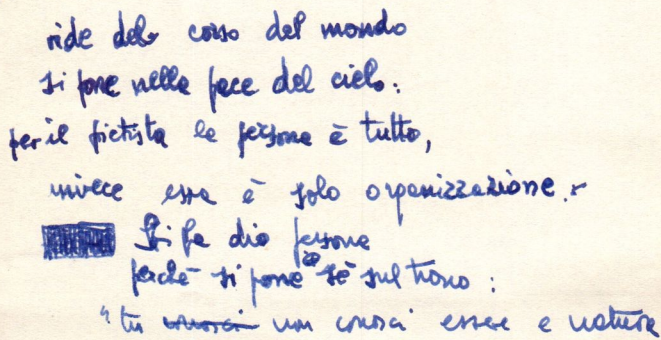 ride del corso del mondo
si pone nella pace del cielo:
per il pietista la persona è tutto,
invece essa è solo organizzazione.
Si fa dio persona
perché si pone sé sul trono:
"tu conosci non conosci essere e natura